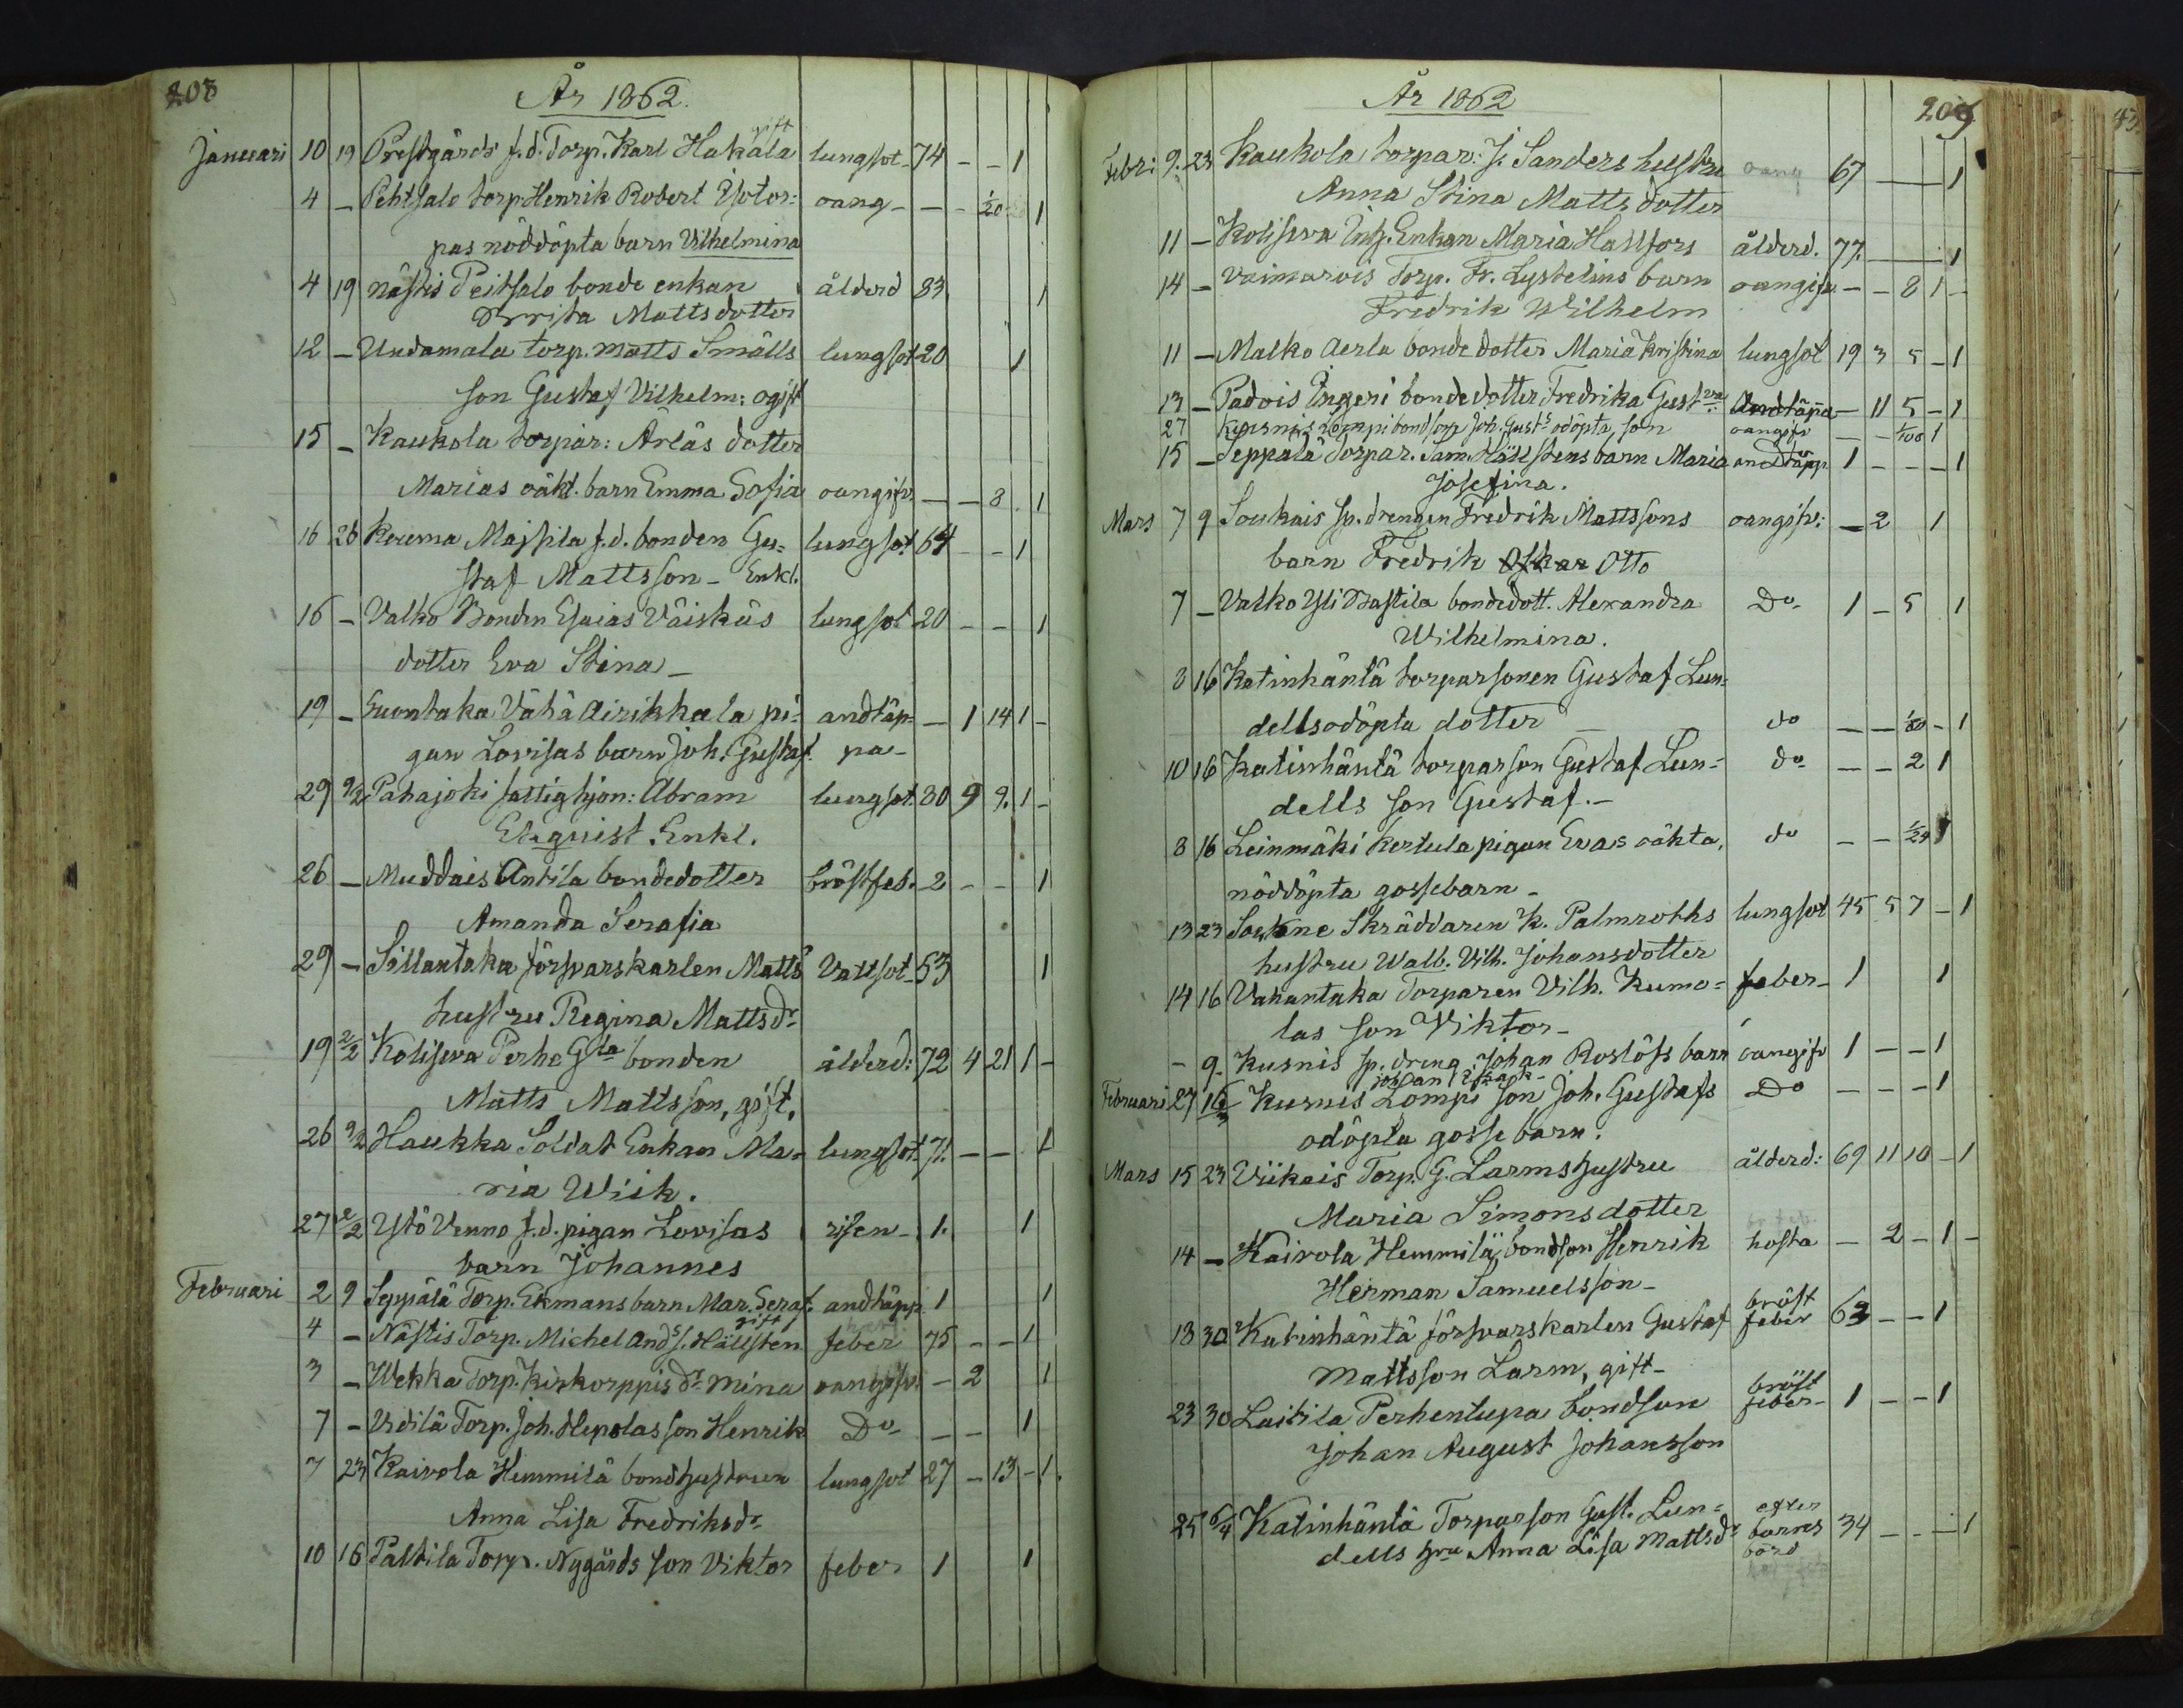 208
År 1862.
Januari 10 19 Prestgårds f.d. Torp. Karl Hakala gift lungsot 74 - - 1
4 - Pehtsalo torp. Henrik Robert Isotor: oang - - - 1/20 1
pas nöddöpta barn Vilhelmina
4 19 nästis Peitsalo bonde enkan ålderd 83 1
Brita Mattsdotter
12 - Undamala torp. Matts Smålls lungsot 20 1
son Gustaf Vilhelm: ogift
15 - Kaukola torpar: Arlås dotter
Marias oäkt. barn Emma Sofia oangifv. - - 8 1
16 26 Keuma Maisila f.d. bonden Gu= lungsot 64 - - 1
staf Mattsson - Enkl.
16 - Valko Bonden Esaias Väiskäs lungsot 20 - - 1
dotter Eva Stina -
19 - Suontaka Vähä Airikkala pi= andtäp= - 1 14 1 -
gan Lovisas barn Joh. Gustaf. pa -
29 9/2 Patajoki fattighjon: Abram lungsot. 30 9 9. 1 -
Ekquist. Enkl.
26 - Muddais Antila bondedotter bröstfeb. 2 - - 1
Amanda Serafia
29 - Sillantaka försvarskarlen Matts Vattsot 53 1
hustru Regina Mattsdr
19 2/2 Kolisewa Perhe Gla bonden ålderd: 72 4 21 1 -
Matts Mattsson, gift.
26 9/2 Haukka Soldat Enkan Ma= lungsot. 71. - - 1
ria Wiik.
27 2/2 Ystö Venno f.d. pigan Lovisas risen - 1. 1
barn Johannes
Februari 2 9 Seppälä Torp. Ekmans barn Mar. Seraf. andtäpp. 1 1
4 - Nästis Torp. Michel Ands. Hällsten gift feber 75 - - 1
3 - Wekka Torp. Kirkorppis dr Mina oangifv. - 2 1
7 - Vidilä Torp. Joh. Hepolas son Henrik Do - - 1
7 23 Kairola Himmilä bondhustrun lungsot 27 - 13 - 1.
Anna Lisa Fredriksdr
10 16 Paltila Torp. Nygårds son Viktor feber 1 1
År 1862
209
Febri 9. 23 Kaukola torpar: J. Sanders hustru oang 67 - 1
Anna Stina Matts dotter
11 - Kolisewa Inh. Enkan Maria Hallfors ålderd. 77. - 1
14 - Vaimarois Torp. Fr. Lystelins barn oangifv. - - 8 1 -
Fredrik Wilhelm
11 - Malko Aerla bonde dotter Maria Kristina lungsot 19 3 5 - 1
13 - Padois Ingeri bonde dotter Fredrika Gustva: Andtäpa - 11 5 - 1
27 Kusnis Lompi bondson Joh. Gusts odöpta son oangifv - - 1/100 1
15 - Seppälä Torpar. Sam. Hällstens barn Maria andtäpp. 1 - - - 1
Josefina.
Mars 7 9 Soukais sp. drengen Fredrik Mattssons oangifv: - 2 1
barn Fredrik Oskar Otto
7 - Valko Yli Bastila bondedott. Alexandra Do - 1 - 5 1
Wilhelmina.
8 16 Katinhäntä torparsonen Gustaf Lun=
dells odöpta dotter - do - - 1/80 - 1
10 16 Katinhäntä torparson Gustaf Lun= do - - 2 1
dells son Gustaf. -
8 16 Leinmäki Kertula pigan Evas oäkta, do - - 1/24 1
nöddöpta gossebarn -
13 23 Soukne Skräddaren K. Palmroths lungsot 45 5 7 - 1
hustru Walb. Vilh. Johansdotter
14 16 Vakantaka Torparen Vilh. Kumo= feber - 1 1
las son Viktor -
- 9 Kusnis sp. dreng Johan Roslöfs barn oangifv 1 - - 1
Johan Isaak
Februari 27 16/3 Kusnis Lompi son Joh. Gustafs Do - - - 1
odöpta gosse barn.
Mars 15 23 Viikais Torp. G. Larms hustru ålderd: 69 11 10 - 1
Maria Simonsdotter
14 - Kairola Hemmilä bondson Henrik hosta - 2 - 1 -
Herman Samuelsson -
18 30 Katinhäntä försvarskarlen Gustaf bröst feber 63 - - 1
Mattsson Larm, gift -
23 30 Laitila Perhentupa bondson bröst feber - 1 - - 1
Johan August Johansson
25 6/4 Katinhäntä Torparson Gust. Lun= efter barns börd 34 - - - 1
dells hru Anna Lisa Mattsdr
43